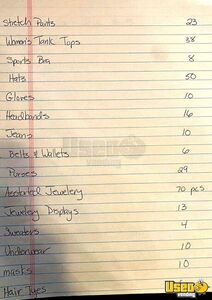 Stretch Pants 23
Women's Tank Tops 38
Sports Bra 8
Hats 50
Gloves 10
Headbands 16
Jeans 10
Belts & Wallets 6
Purses 29
Assorted Jewelery 70 pcs
Jewelery Displays 13
Sweaters 4
Underwear 10
masks 10
Hair Types
USED
vending